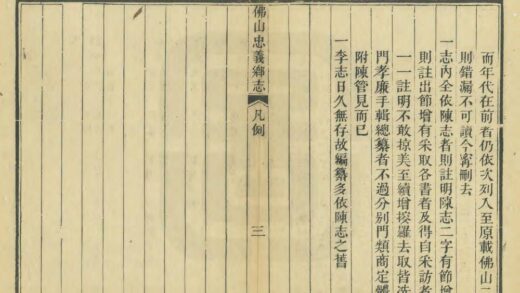 而年代在前者仍依次列入至原載佛山
則錯漏不可讀今寗刪去
一志內全依陳志者則註明陳志二字有節增
則註出節增有采取各書者及得自采訪者
一一註明不敢掠美至續增搜羅去取皆冼
門孝廉手輯總纂者不過分別門類商定體
附陳管見而已
一李志日久無存故編纂多依陳志之舊
佛山忠義鄉志 凡例 三